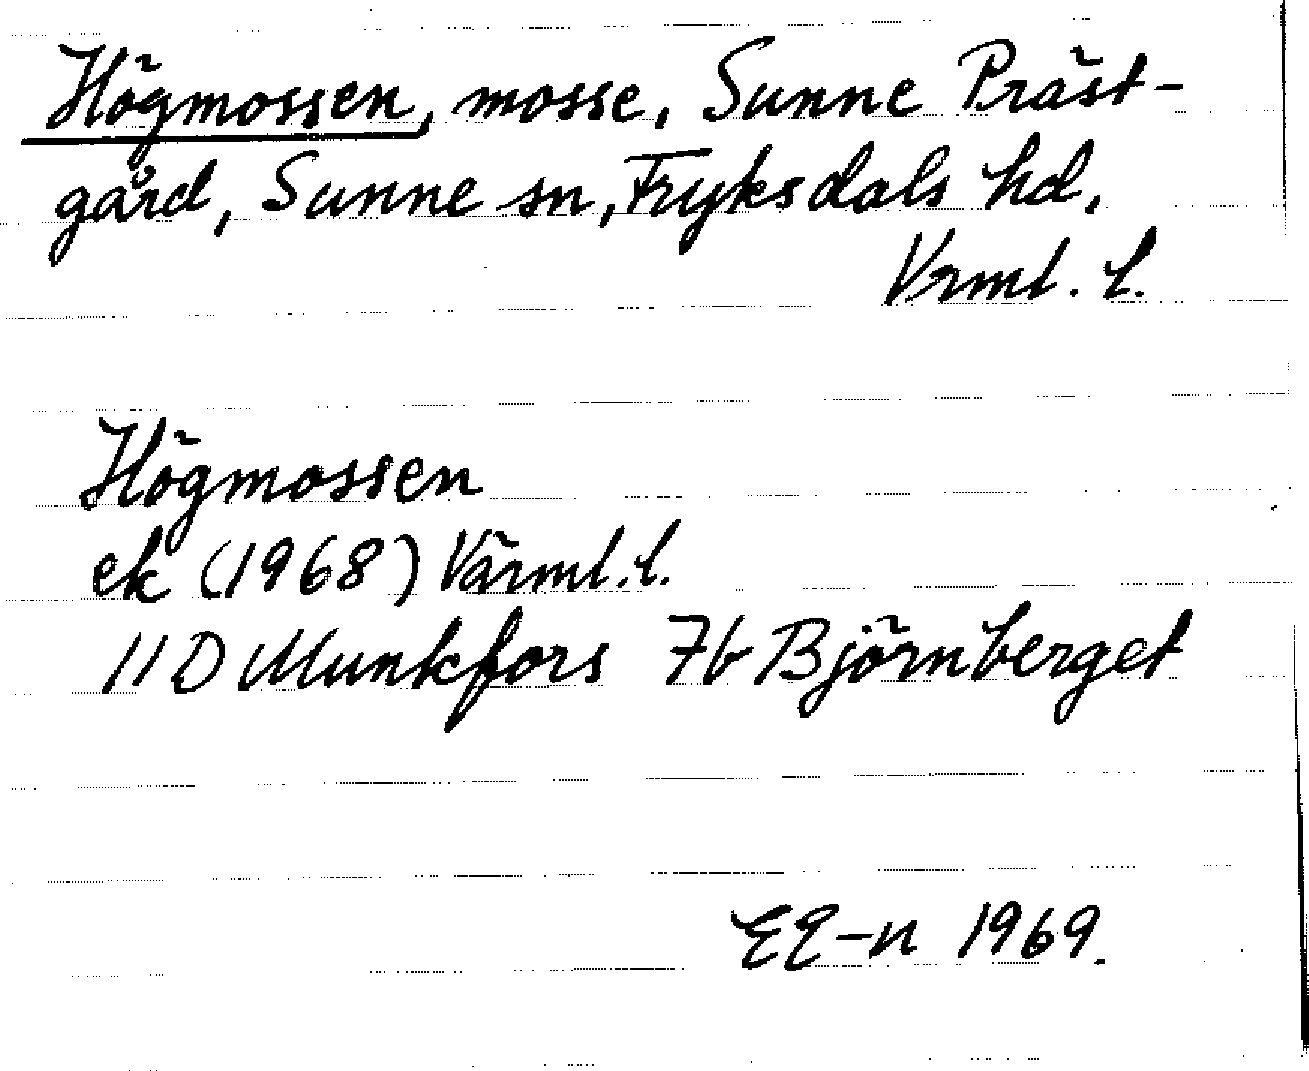 Högmossen, mosse, Sunne Präst-
gård, Sunne sn, Fryksdals hd,
Vrml. l.
Högmossen
ek (1968) Värml. l.
11D Munkfors 7b Björnberget
EE-n 1969.